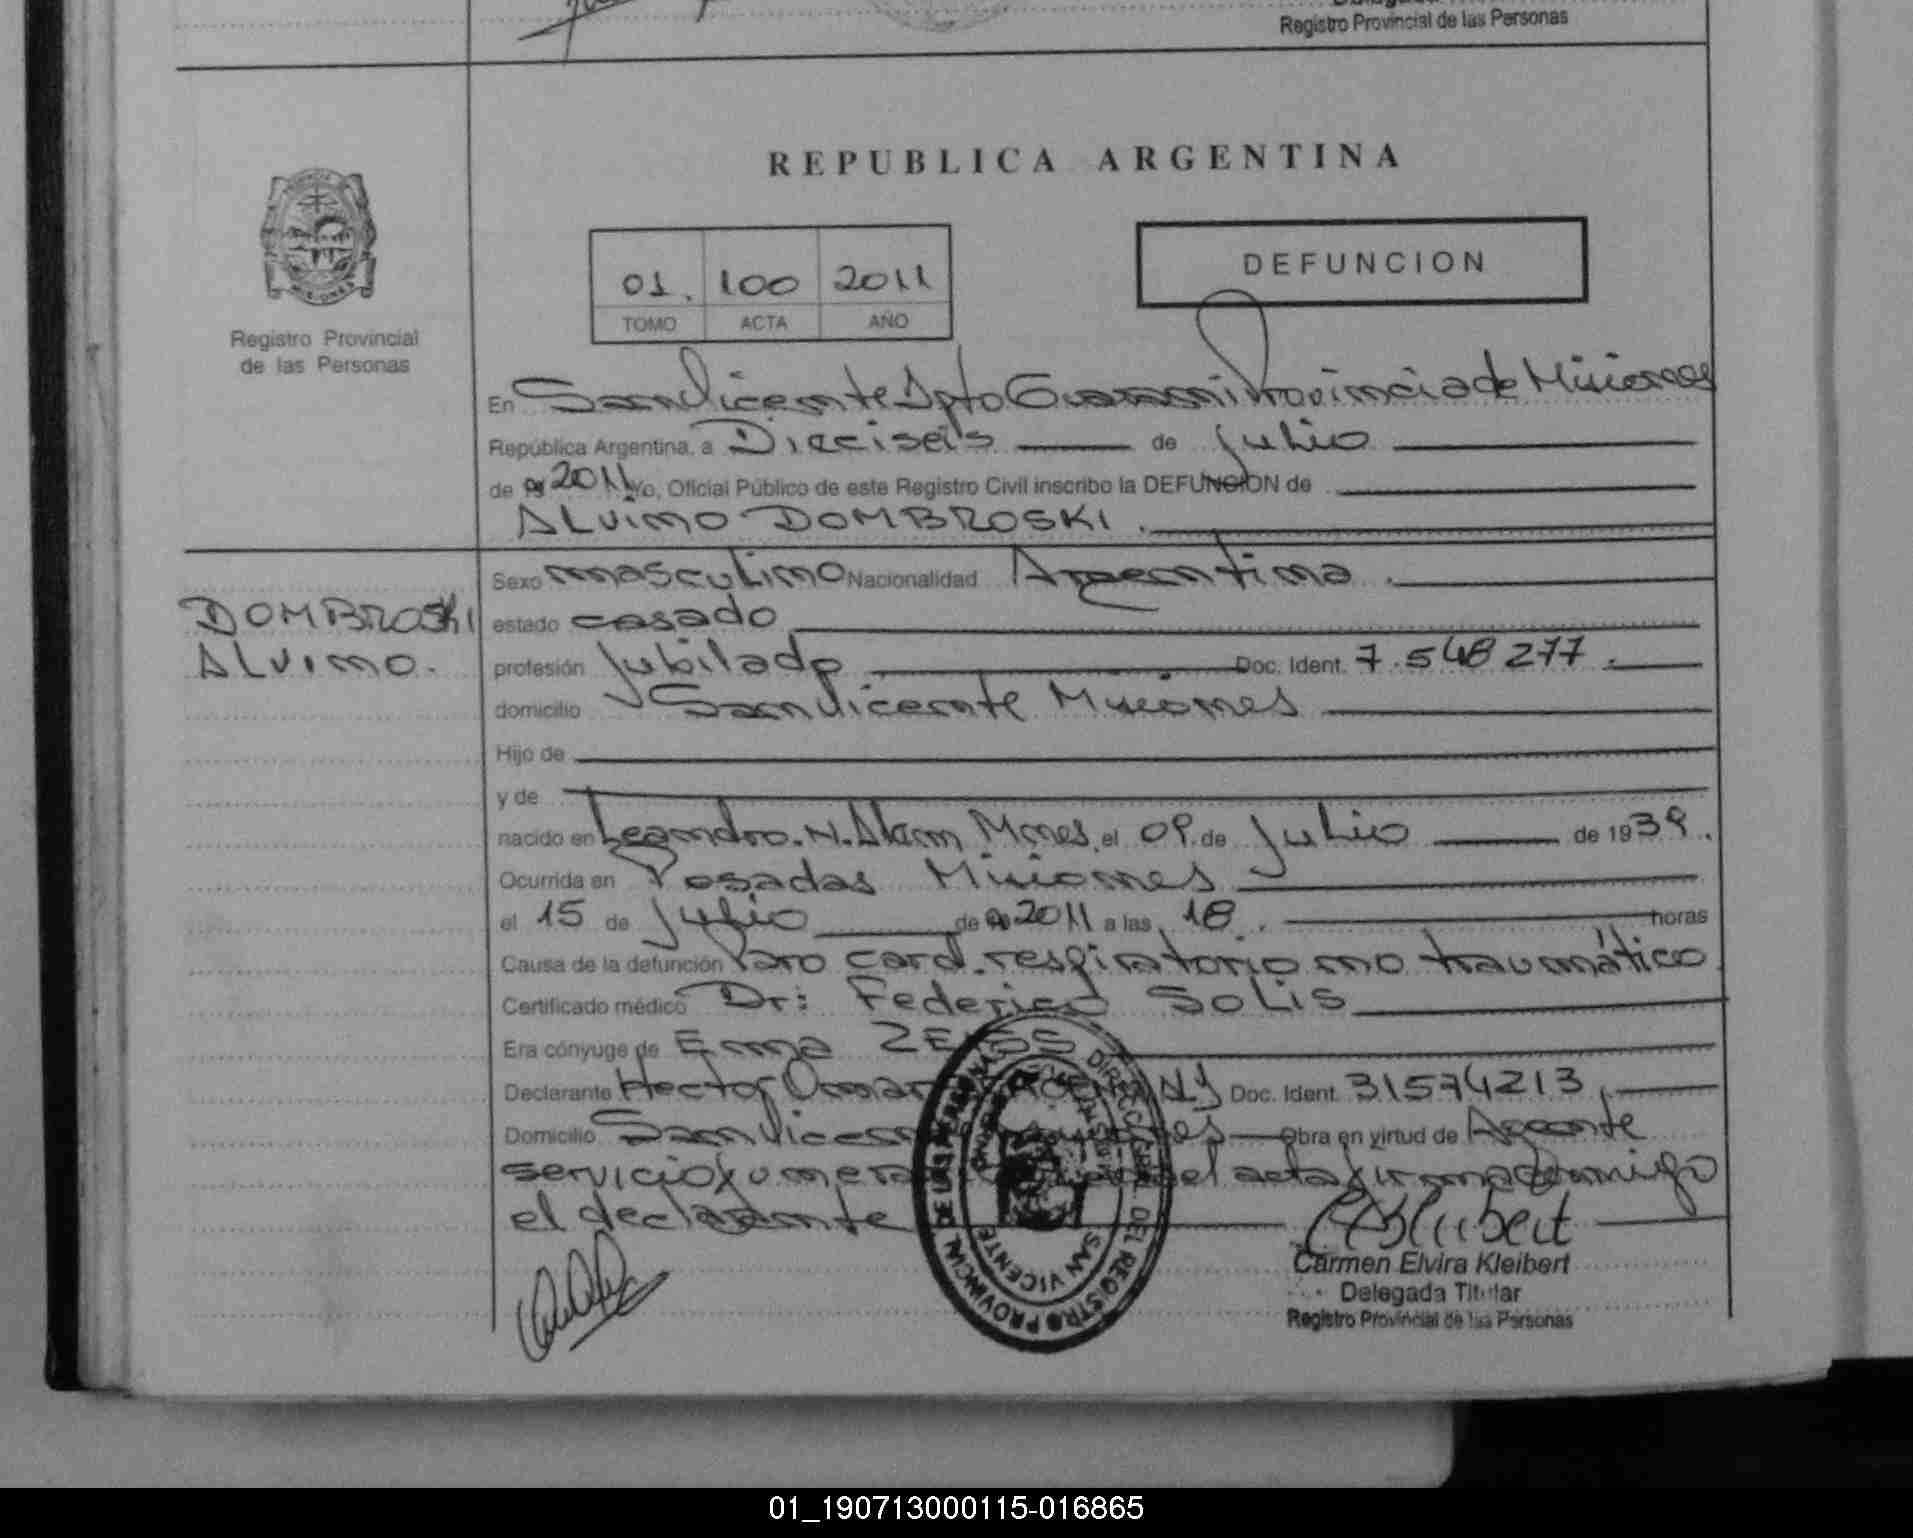 Registro Provincial de las Personas
REPUBLICA ARGENTINA
01. 100 2011
TOMO ACTA AÑO
DEFUNCION
Registro Provincial
de las Personas
En San Vicente Dpto Guarani Provincia de Misiones
República Argentina, a Dieciseis de Julio
de 2011 Yo, Oficial Público de este Registro Civil inscribo la DEFUNCION de
ALVINO DOMBROSKI.
Sexo masculino Nacionalidad Argentina.
DOMBROSKI
ALVINO.
estado casado
profesión Jubilado Doc. Ident. 7.548277.
domicilio San Vicente Misiones
Hijo de
y de
nacido en Leandro. N. Alem Mnes, el 09 de Julio de 1939.
Ocurrida en Posadas Misiones
el 15 de Julio de 2011 a las 18. horas
Causa de la defunción Paro card. respiratorio no traumático
Certificado médico Dr: Federico SOLIS
Era cónyuge de Erma
Declarante Hector Omar Doc. Ident. 31574213.
Domicilio San Vicente Misiones Obra en virtud de Agente
servicio del acta firma conmigo
el declarante
Carmen Elvira Kleibert
Delegada Titular
Registro Provincial de las Personas
DIRECC. GRAL. DEL REGISTRO PROVINCIAL DE LAS PERSONAS
SAN VICENTE
01_190713000115-016865